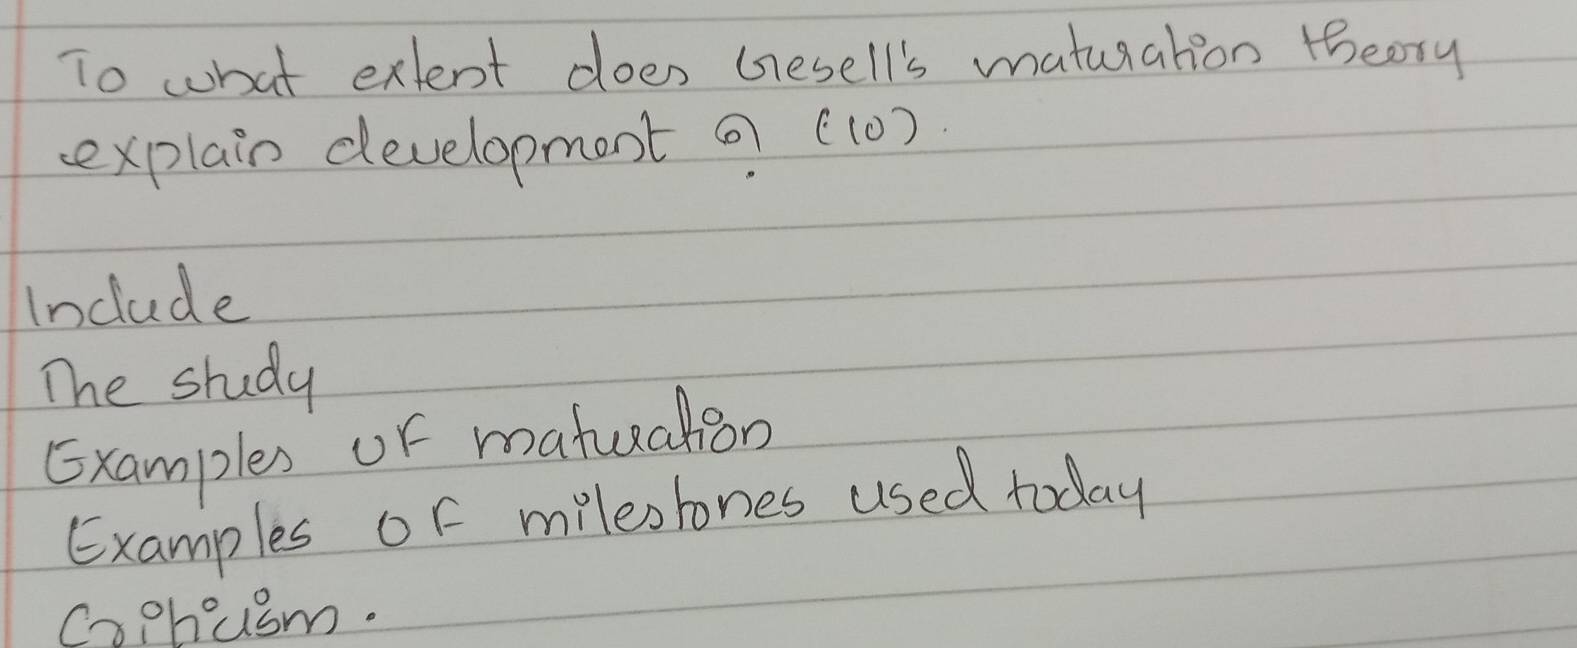 To what extent does Gesell's maturation theory
explain development ? (10).
Include
The study
Examples of maturation
Examples of milestones used today
Criticism.